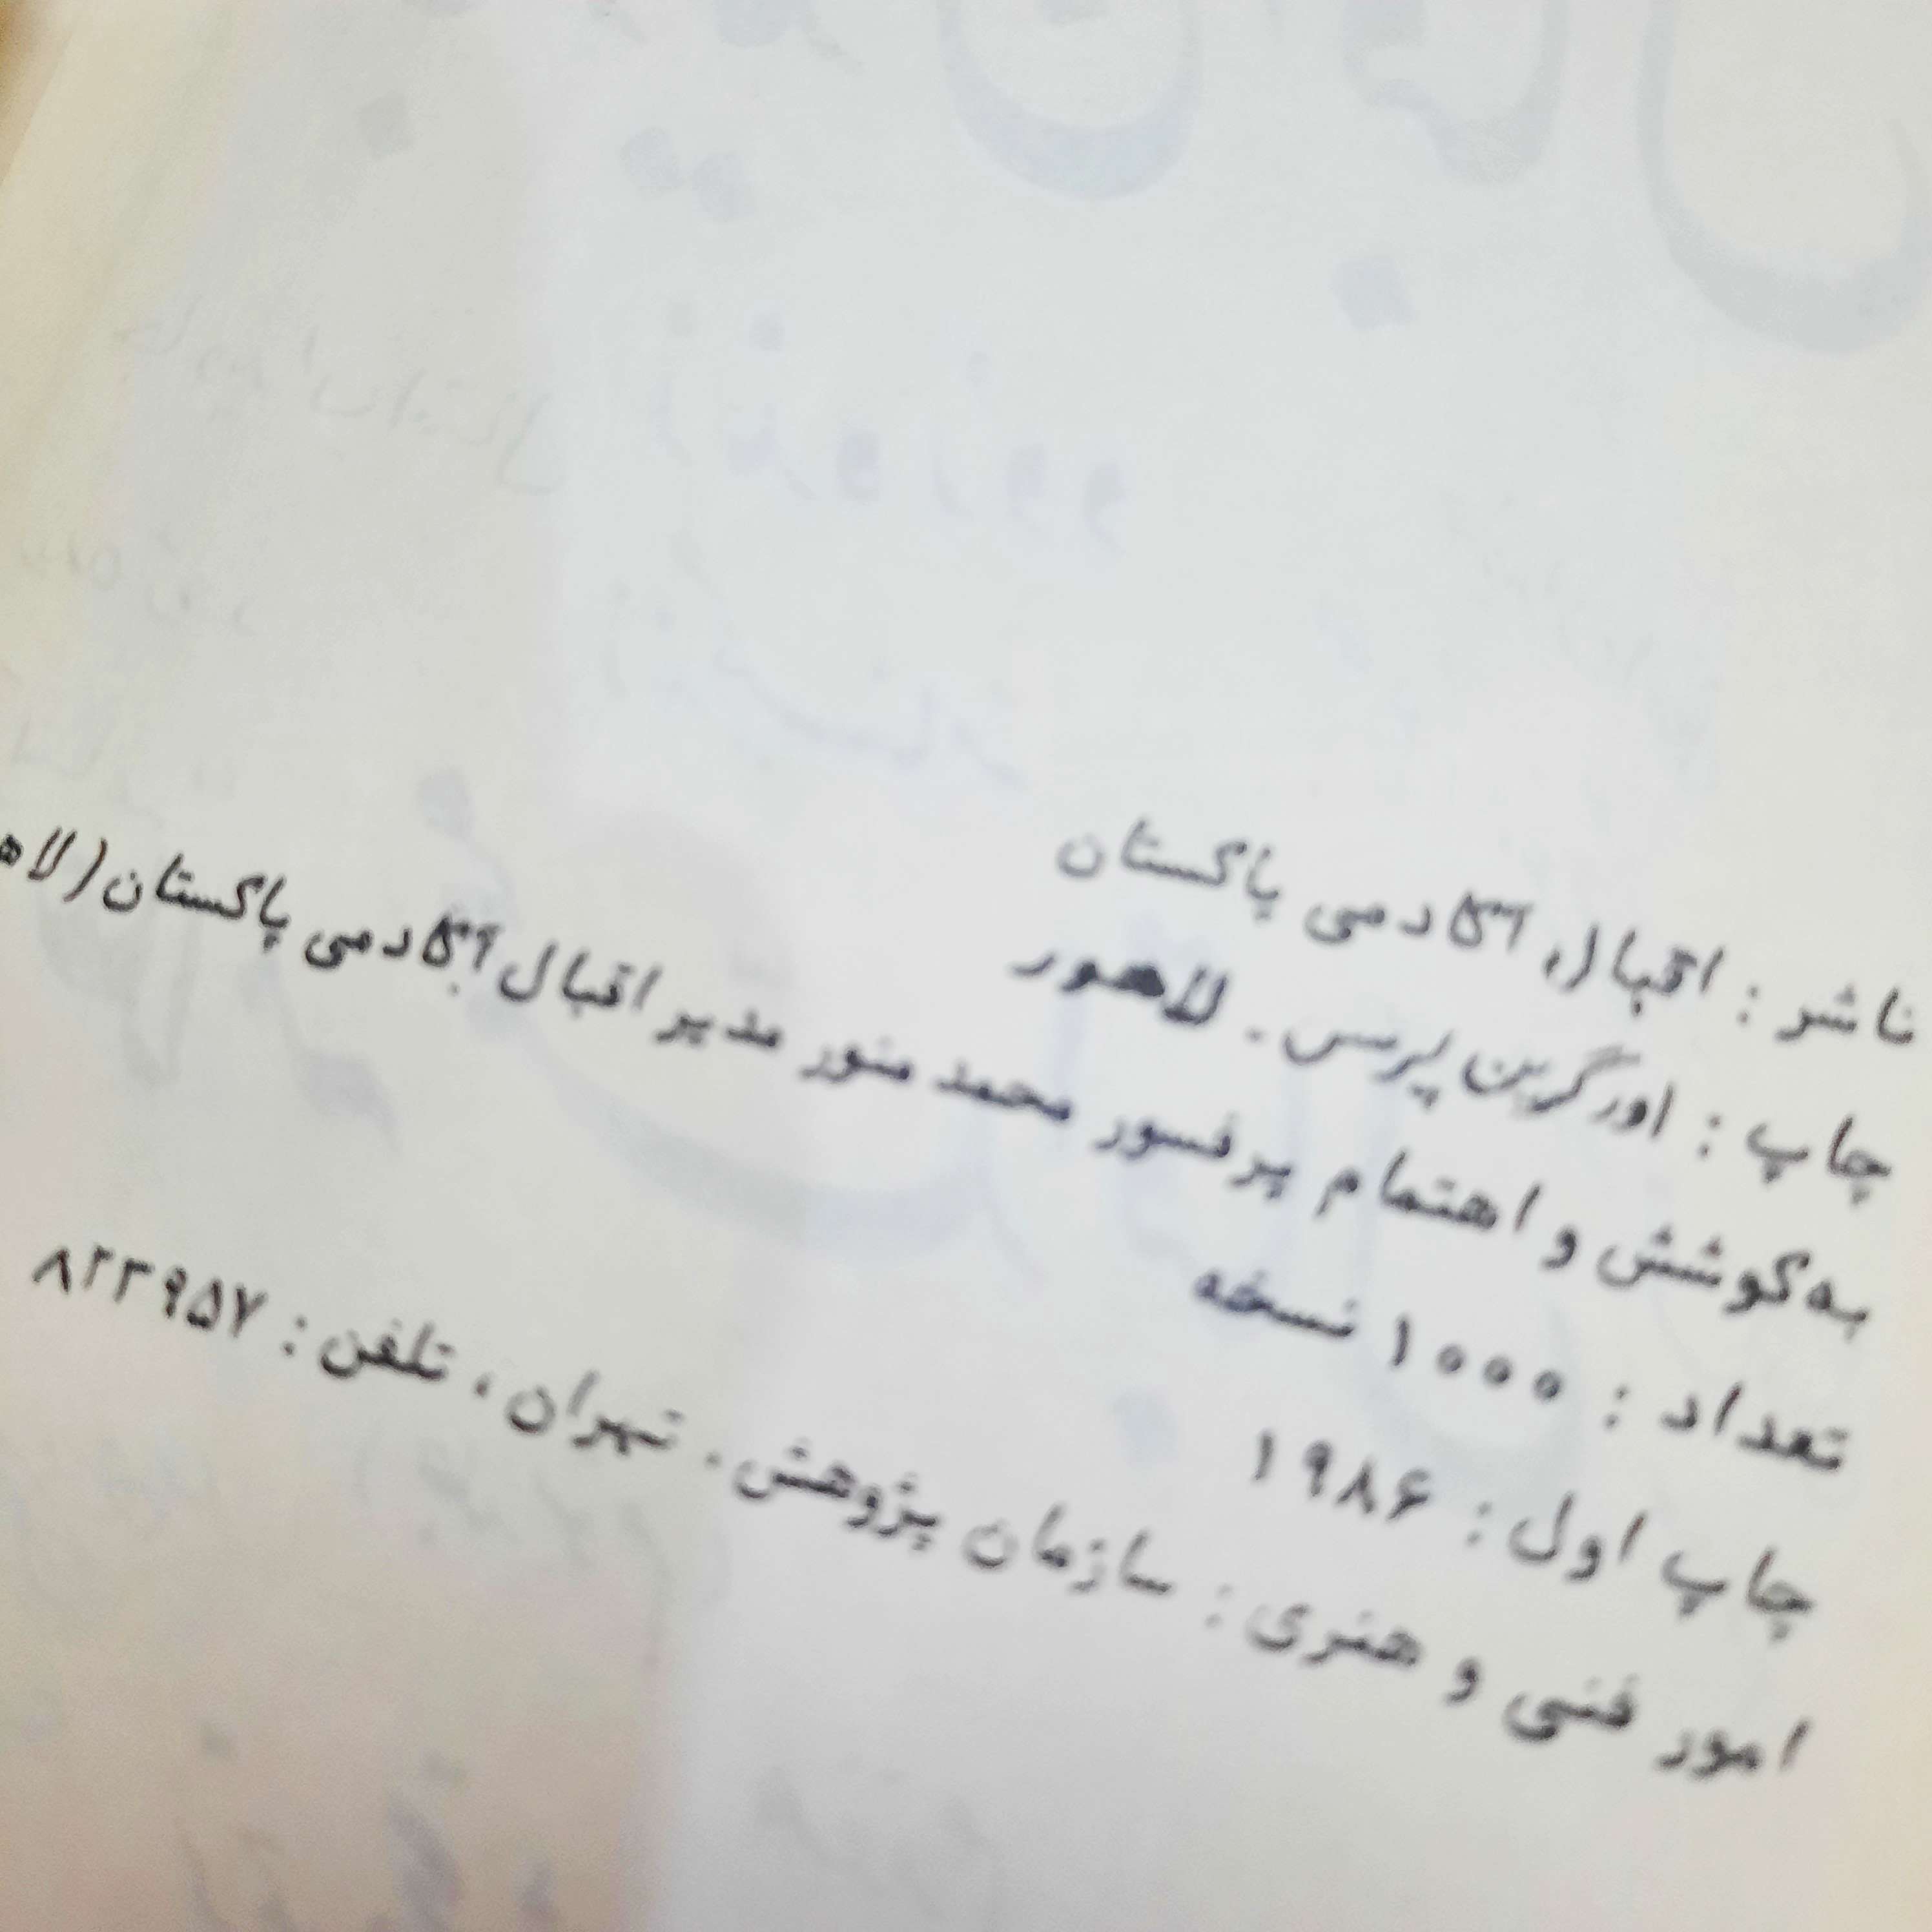 ناشر : اقبال آکادمی پاکستان
چاپ : اورگرین پرس - لاهور
به کوشش و اهتمام پرفسور محمد منور مدیر اقبال آکادمی پاکستان (لاه
تعداد : ۱۰۰۰ نسخه
چاپ اول : ۱۹۸۶
امور فنی و هنری : سازمان پژوهش - تهران ، تلفن : ۸۲۳۹۵۷